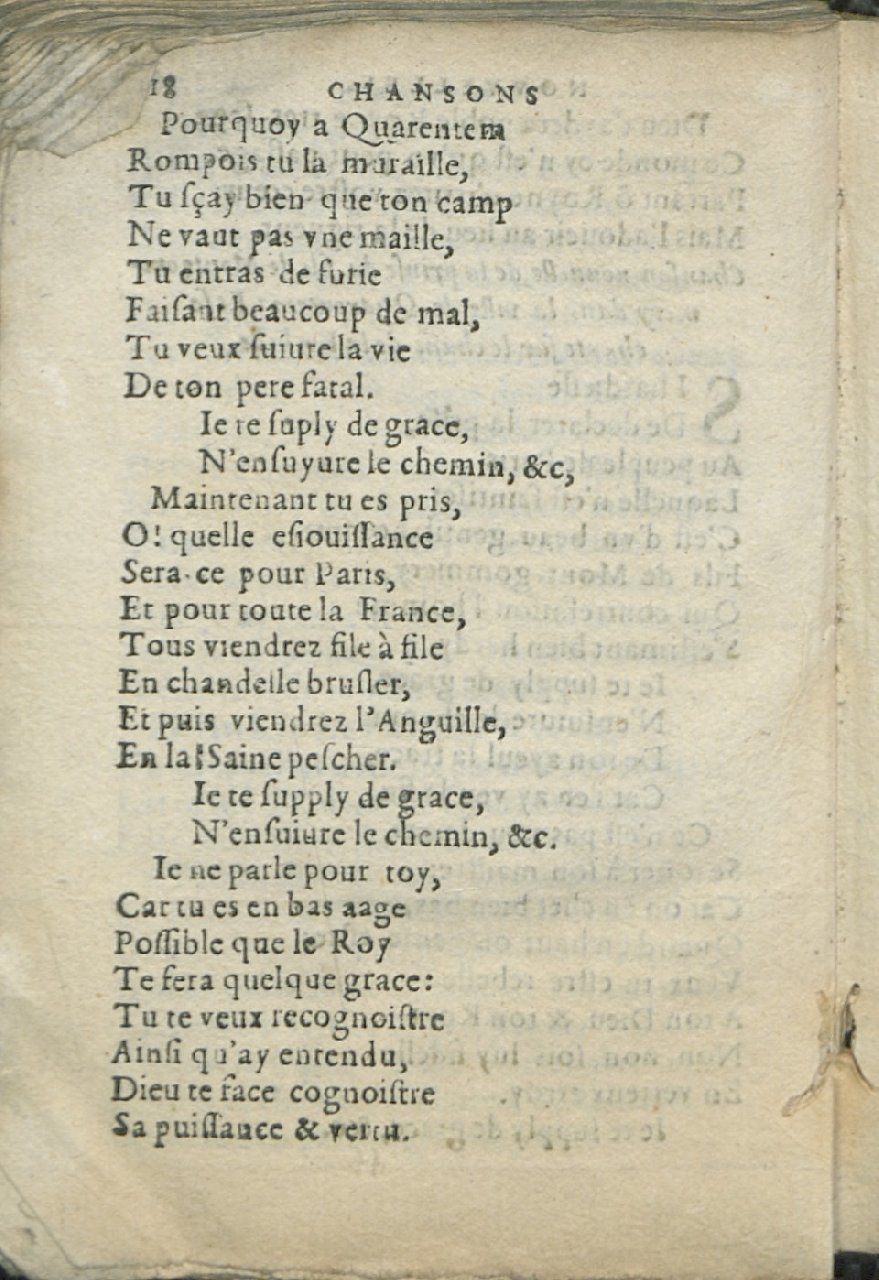 18 CHANSONS
Pourquoy a Quarentem
Rompois tu la muraille,
Tu sçay bien que ton camp
Ne vaut pas vne maille,
Tu entras de furie
Faiſant beaucoup de mal,
Tu veux ſuiure la vie
De ton pere fatal.
Ie te ſuply de grace,
N'enſuyure le chemin, &c,
Maintenant tu es pris,
O! quelle eſiouiſſance
Sera-ce pour Paris,
Et pour toute la France,
Tous viendrez file à file
En chandelle bruſler,
Et puis viendrez l'Anguille,
En la Saine peſcher.
Ie te ſupply de grace,
N'enſuiure le chemin, &c.
Ie ne parle pour toy,
Car tu es en bas aage
Poſſible que le Roy
Te fera quelque grace:
Tu te veux recognoiſtre
Ainſi qu'ay entendu,
Dieu te face cognoiſtre
Sa puiſſance & vertu.